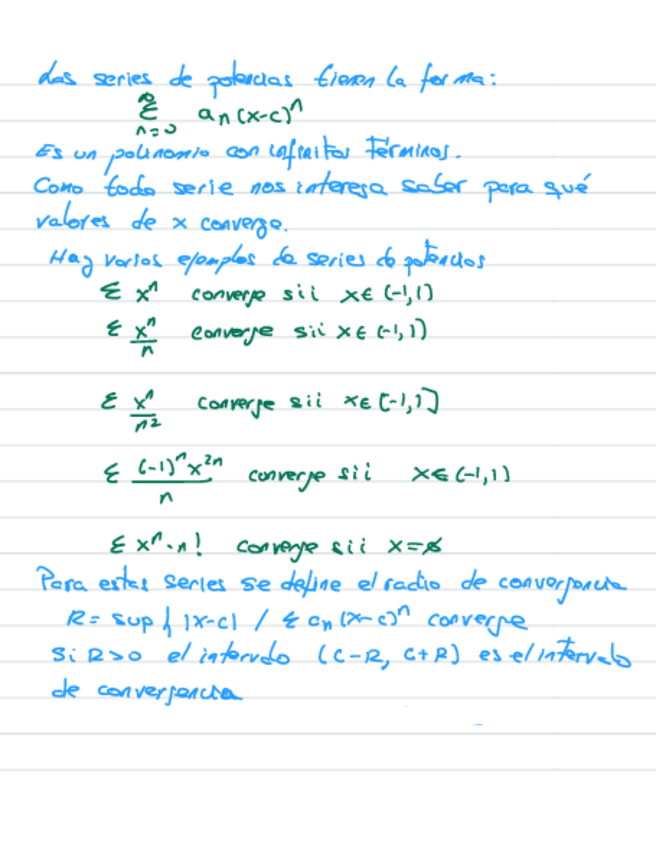 Las series de potencias tienen la forma:
∞
Σ an(x-c)^n
n=0
Es un polinomio con infinitos términos.
Como toda serie nos interesa saber para qué
valores de x converge.
Hay varios ejemplos de series de potencias
Σ x^n converge sii x∈(-1,1)
Σ x^n/n converge sii x∈(-1,1)
Σ x^n/n^2 converge sii x∈[-1,1]
Σ (-1)^n x^2n/n converge sii x∈(-1,1)
Σ x^n·n! converge sii x=ø
Para estas series se define el radio de convergencia
R= sup { |x-c| / Σ an(x-c)^n converge
Si R>0 el intervalo (c-R, c+R) es el intervalo
de convergencia